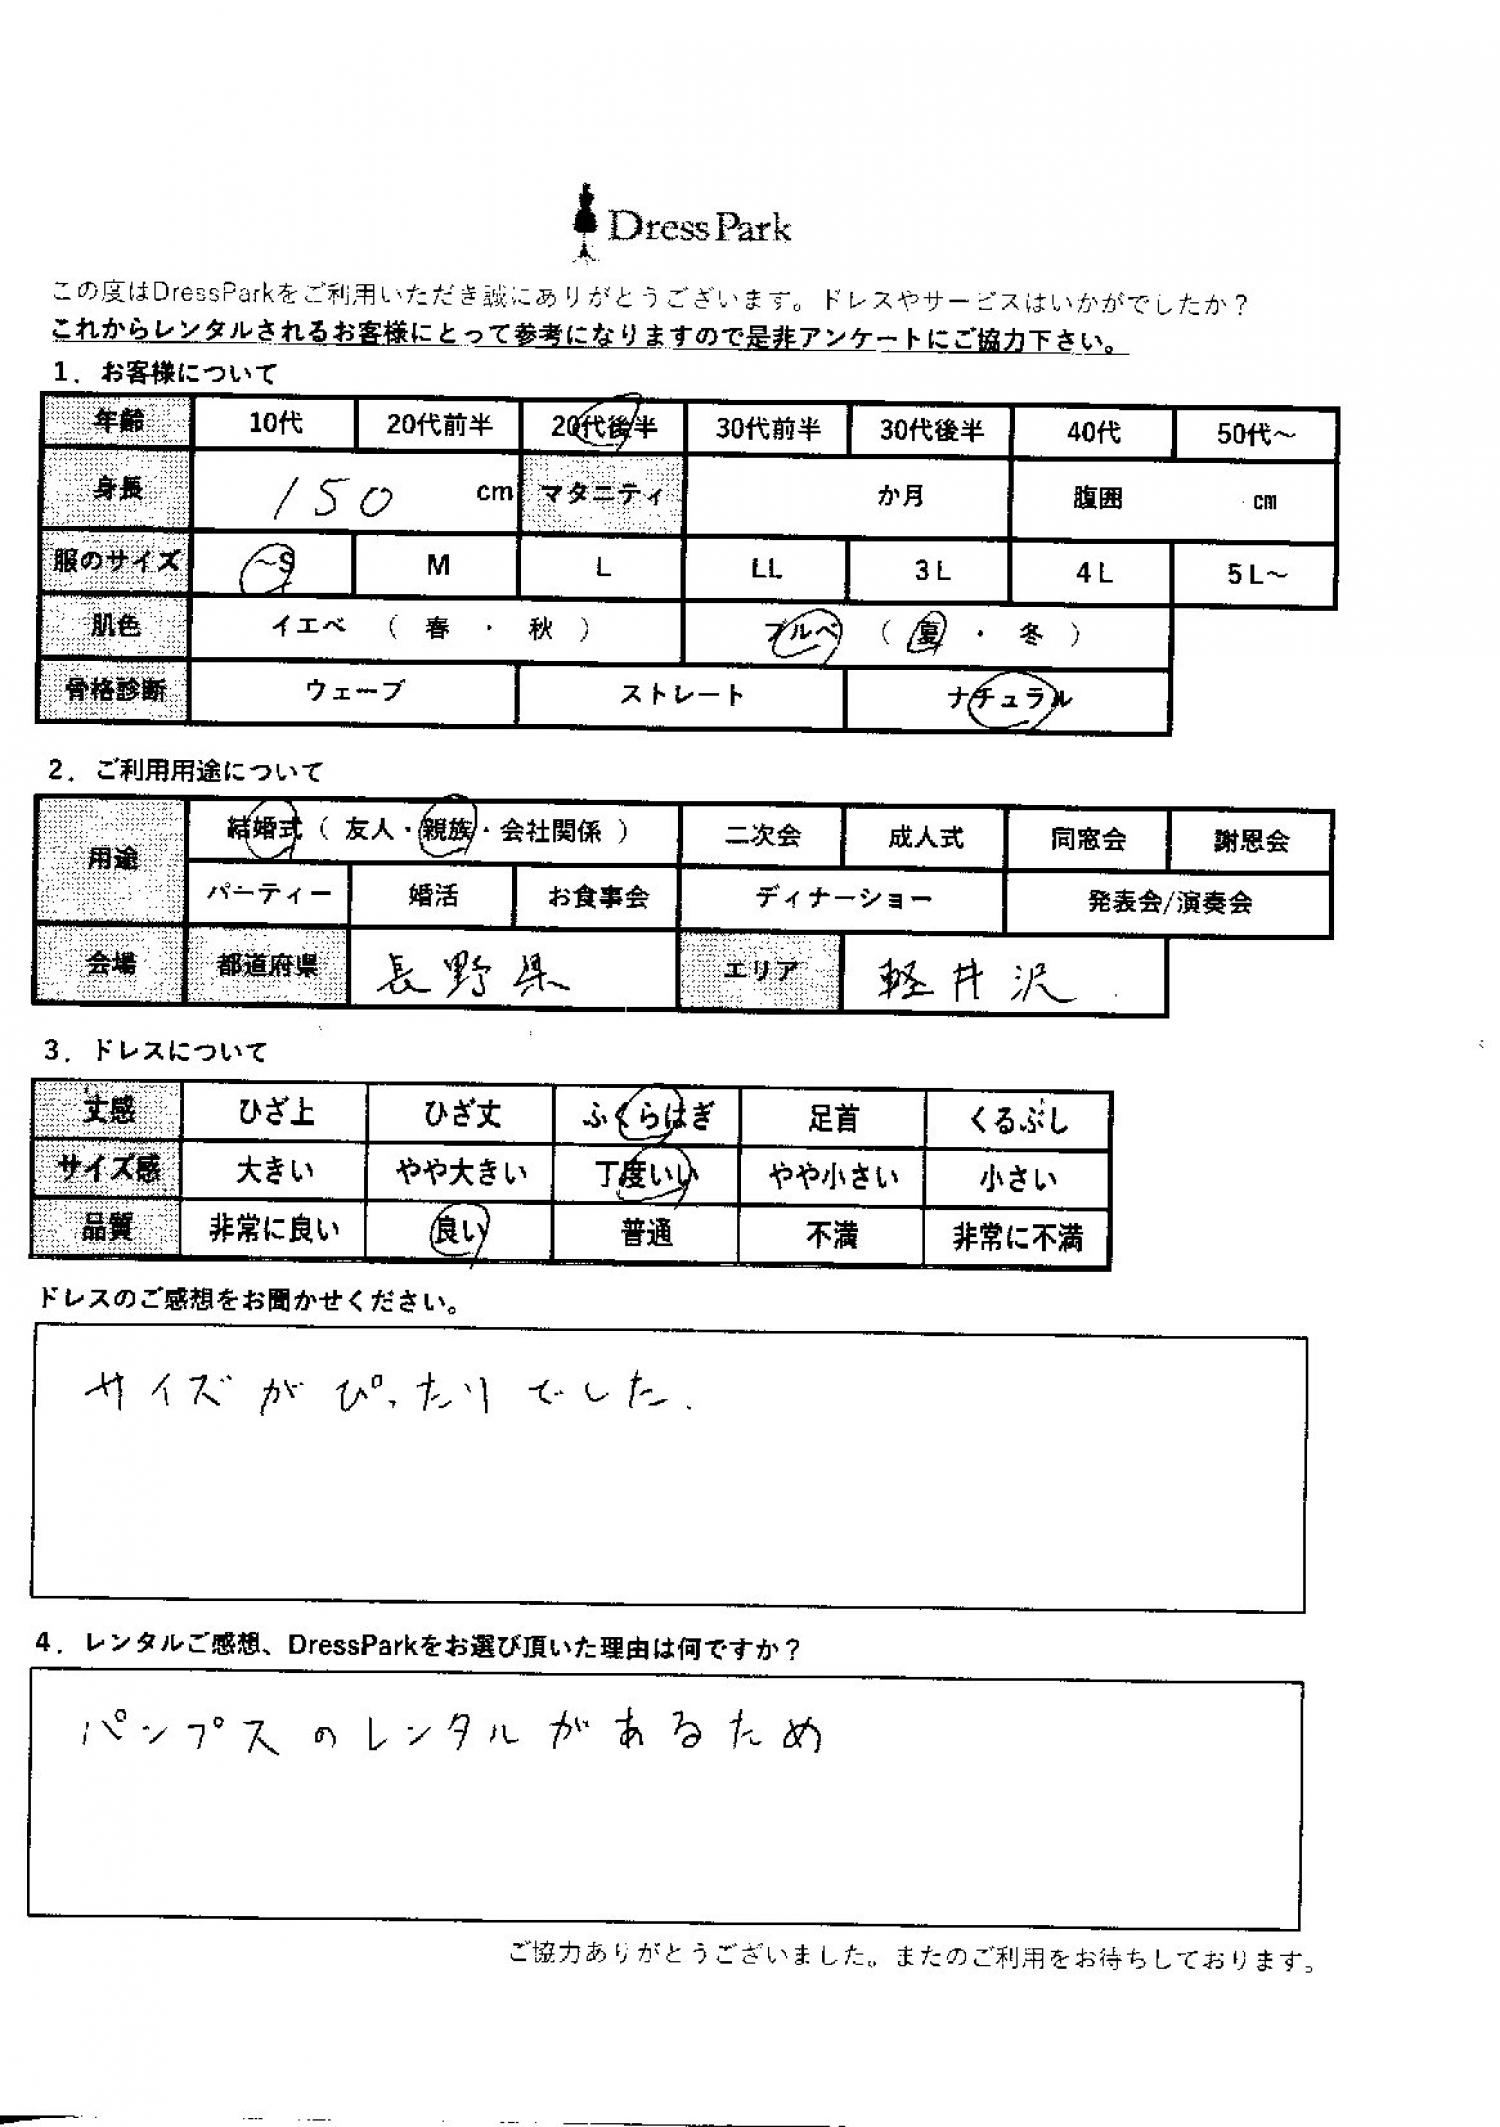 DressPark
この度はDressParkをご利用いただき誠にありがとうございます。ドレスやサービスはいかがでしたか？
これからレンタルされるお客様にとって参考になりますので是非アンケートにご協力下さい。
1．お客様について
年齢 10代 20代前半 20代後半 30代前半 30代後半 40代 50代～
身長 150 cm マタニティ か月 腹囲 cm
服のサイズ ～S M L LL 3L 4L 5L～
肌色 イエベ （ 春 ・ 秋 ） ブルベ （ 夏 ・ 冬 ）
骨格診断 ウェーブ ストレート ナチュラル
2．ご利用用途について
用途 結婚式（ 友人・親族・会社関係 ） 二次会 成人式 同窓会 謝恩会
パーティー 婚活 お食事会 ディナーショー 発表会/演奏会
会場 都道府県 長野県 エリア 軽井沢
3．ドレスについて
丈感 ひざ上 ひざ丈 ふくらはぎ 足首 くるぶし
サイズ感 大きい やや大きい 丁度いい やや小さい 小さい
品質 非常に良い 良い 普通 不満 非常に不満
ドレスのご感想をお聞かせください。
サイズがぴったりでした.
4．レンタルご感想、DressParkをお選び頂いた理由は何ですか？
パンプスのレンタルがあるため
ご協力ありがとうございました。またのご利用をお待ちしております。